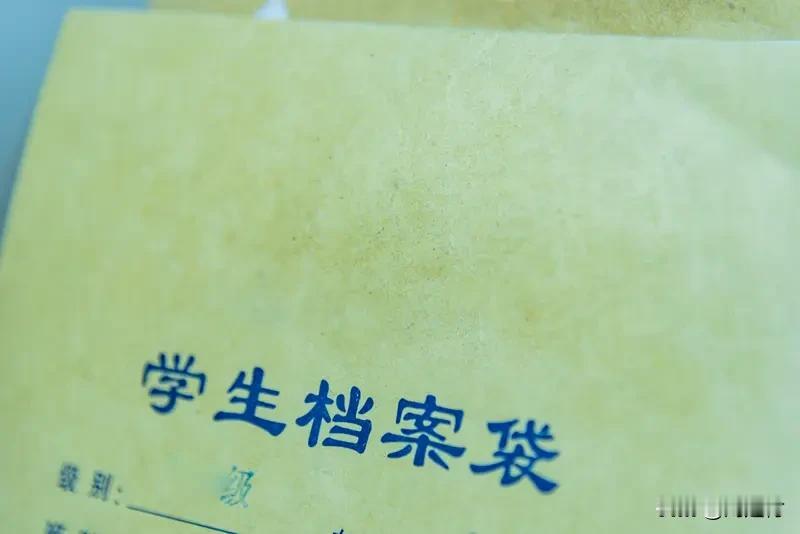 学生档案袋
级别: 级